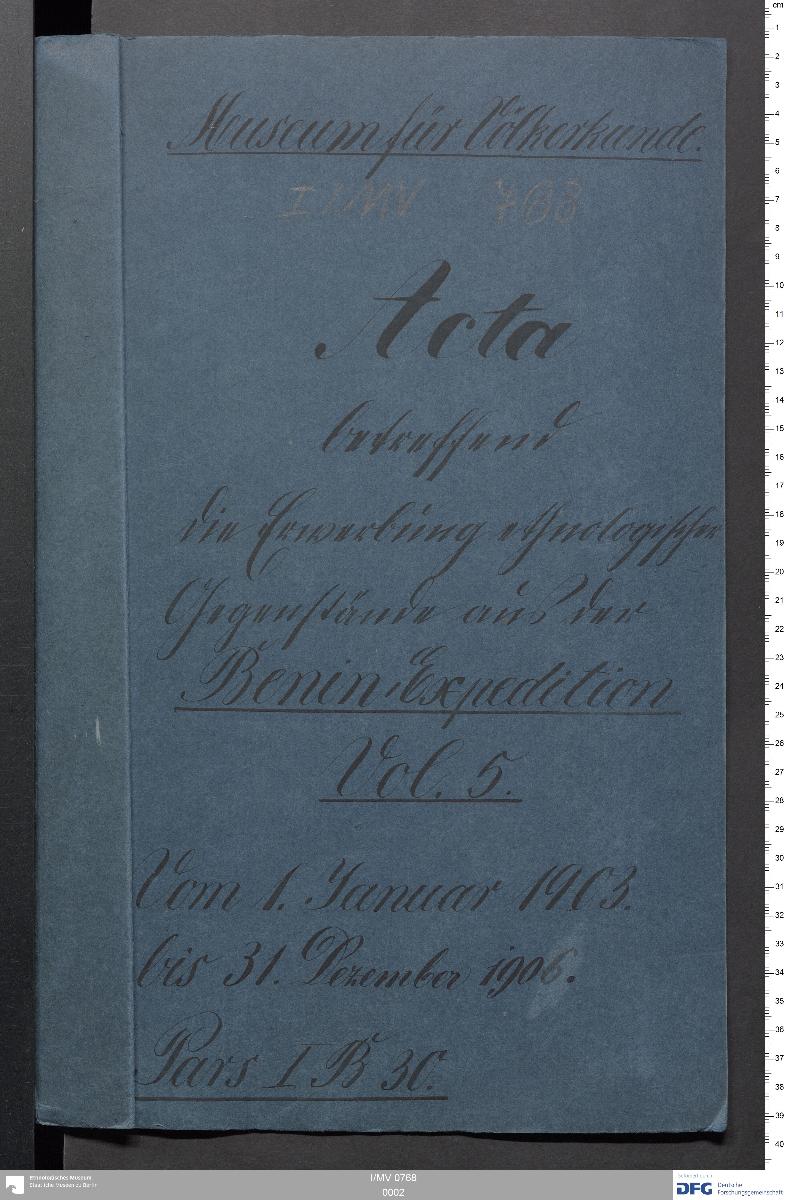 Museum für Völkerkunde.
I/MV 768
Acta
betreffend
die Erwerbung ethnologischer
Gegenstände aus der
Benin-Expedition
Vol. 5.
Vom 1. Januar 1903.
bis 31. Dezember 1906.
Pars I B 30.
Ethnologisches Museum
Staatliche Museen zu Berlin
I/MV 0768
0002
gefördert durch
DFG Deutsche
Forschungsgemeinschaft
cm
1
2
3
4
5
6
7
8
9
10
11
12
13
14
15
16
17
18
19
20
21
22
23
24
25
26
27
28
29
30
31
32
33
34
35
36
37
38
39
40